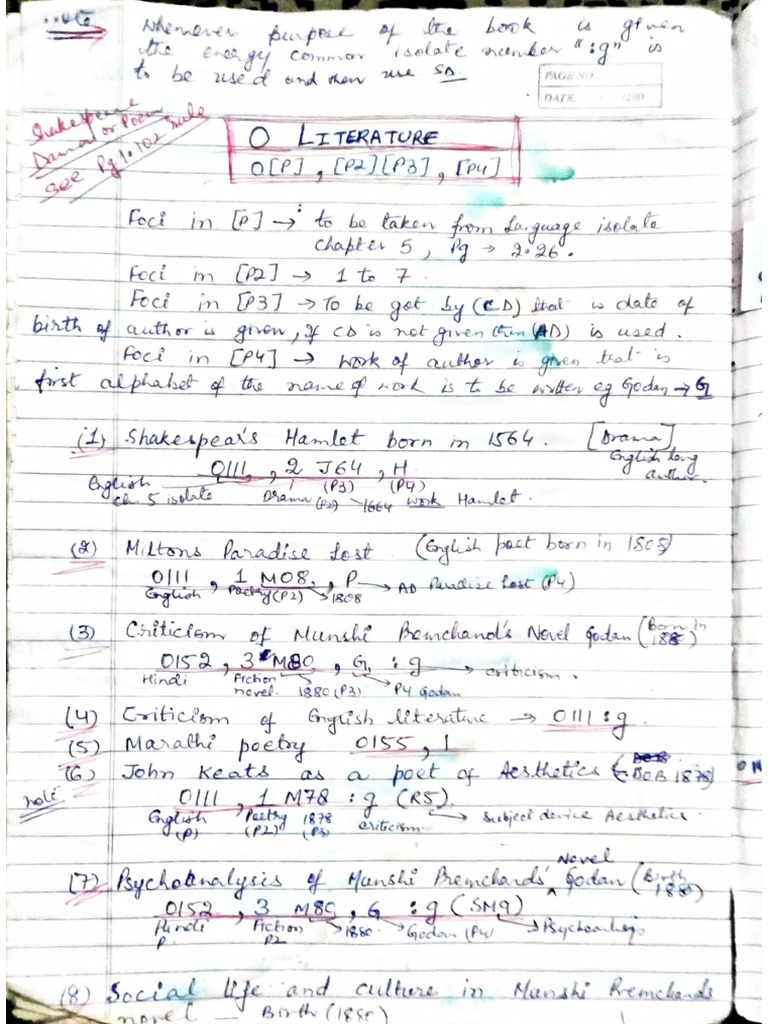 note
Whenever purpose of the book is given
the energy common isolate number ":g" is
to be used and then use SD
PAGE NO.
DATE: /200
Shakespeare
Dama or Poem
See Pg 1.102 rule
O LITERATURE
O[P], [P2][P3], [P4]
Foci in [P] → to be taken from language isolate
chapter 5, Pg → 2.26.
Foci in [P2] → 1 to 7.
Foci in [P3] → To be got by (CD) that is date of
birth of author is given, if CD is not given then (AD) is used.
Foci in [P4] → work of author is given that is
first alphabet of the name of work is to be written eg Godan → G
(1) Shakespear's Hamlet born in 1564. [Drama]
English lang
author.
O111, 2 J64, H
English (P3) (P4)
Ch. 5 isolate Drama (P2) 1664 work Hamlet.
(2) Miltons Paradise Lost (English poet born in 1808)
O111, 1 M08, P → AD Paradise Lost (P4)
English Poetry (P2) 1808
(3) Criticism of Munshi Premchand's Novel Godan (Born in
1880)
O152, 3 M80, G :g → criticism.
Hindi Fiction novel. 1880 (P3) P4 Godan
(4) Criticism of English literature → O111:g
(5) Marathi poetry O155, 1
(6) John Keats as a poet of Aesthetics (DOB 1878)
note
O111, 1 M78 :g (R5)
English Poetry 1878 criticism Subject device Aesthetics.
(P) (P2) (P3)
(7) Psychoanalysis of Munshi Premchands' Novel Godan (Birth
1880)
O152, 3 M80, G :g (SMg)
Hindi Fiction 1880. Godan (P4) Psychoanlysis
P. P2
(8) Social life and culture in Munshi Premchands
novel — Birth (1880)